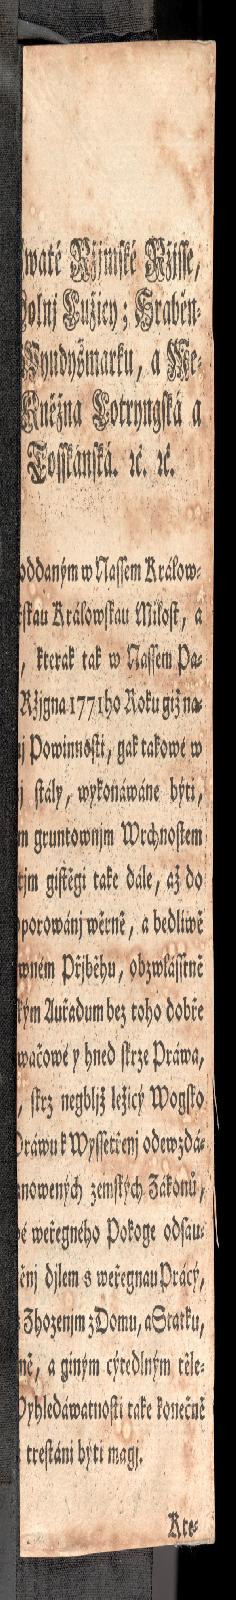 waté Ržimſké Ržiſſe,
olnj Lužicy; Hraběn-
Wyndyšmarku, a Me-
Kněžna Lotryngſká a
Toſſkánſká. ꝛc. ꝛc.
oddaným w Naſſem Králow-
ſkau Králowſkau Miloſt, a
, kterak tak w Naſſem Pa-
Ržjgna 1771ho Roku giž na-
j Powinnoſti, gak takowé w
j ſtály, wykonáwáne býti,
m gruntownjm Wrchnoſtem
tjm giſtěgi také dále, až do
porowánj wěrně, a bedliwě
wném Přjběhu, obzwláſſtně
kým Auřadum bez toho dobře
wačowé y hned ſkrze Práwa,
, ſkrz negbljž ležicý Wogſko
Práwu k Wyſſetřenj odewzdá-
anowených zemſkých Zákonů,
é weřegného Pokoge odſau-
ěnj djlem s weřegnau Prácý,
Zhoženjm z Domu, a Statku,
ně, a giným cýtedlným těle-
Wyhledáwatnoſti také konečně
treſtáni býti magj.
Kte-